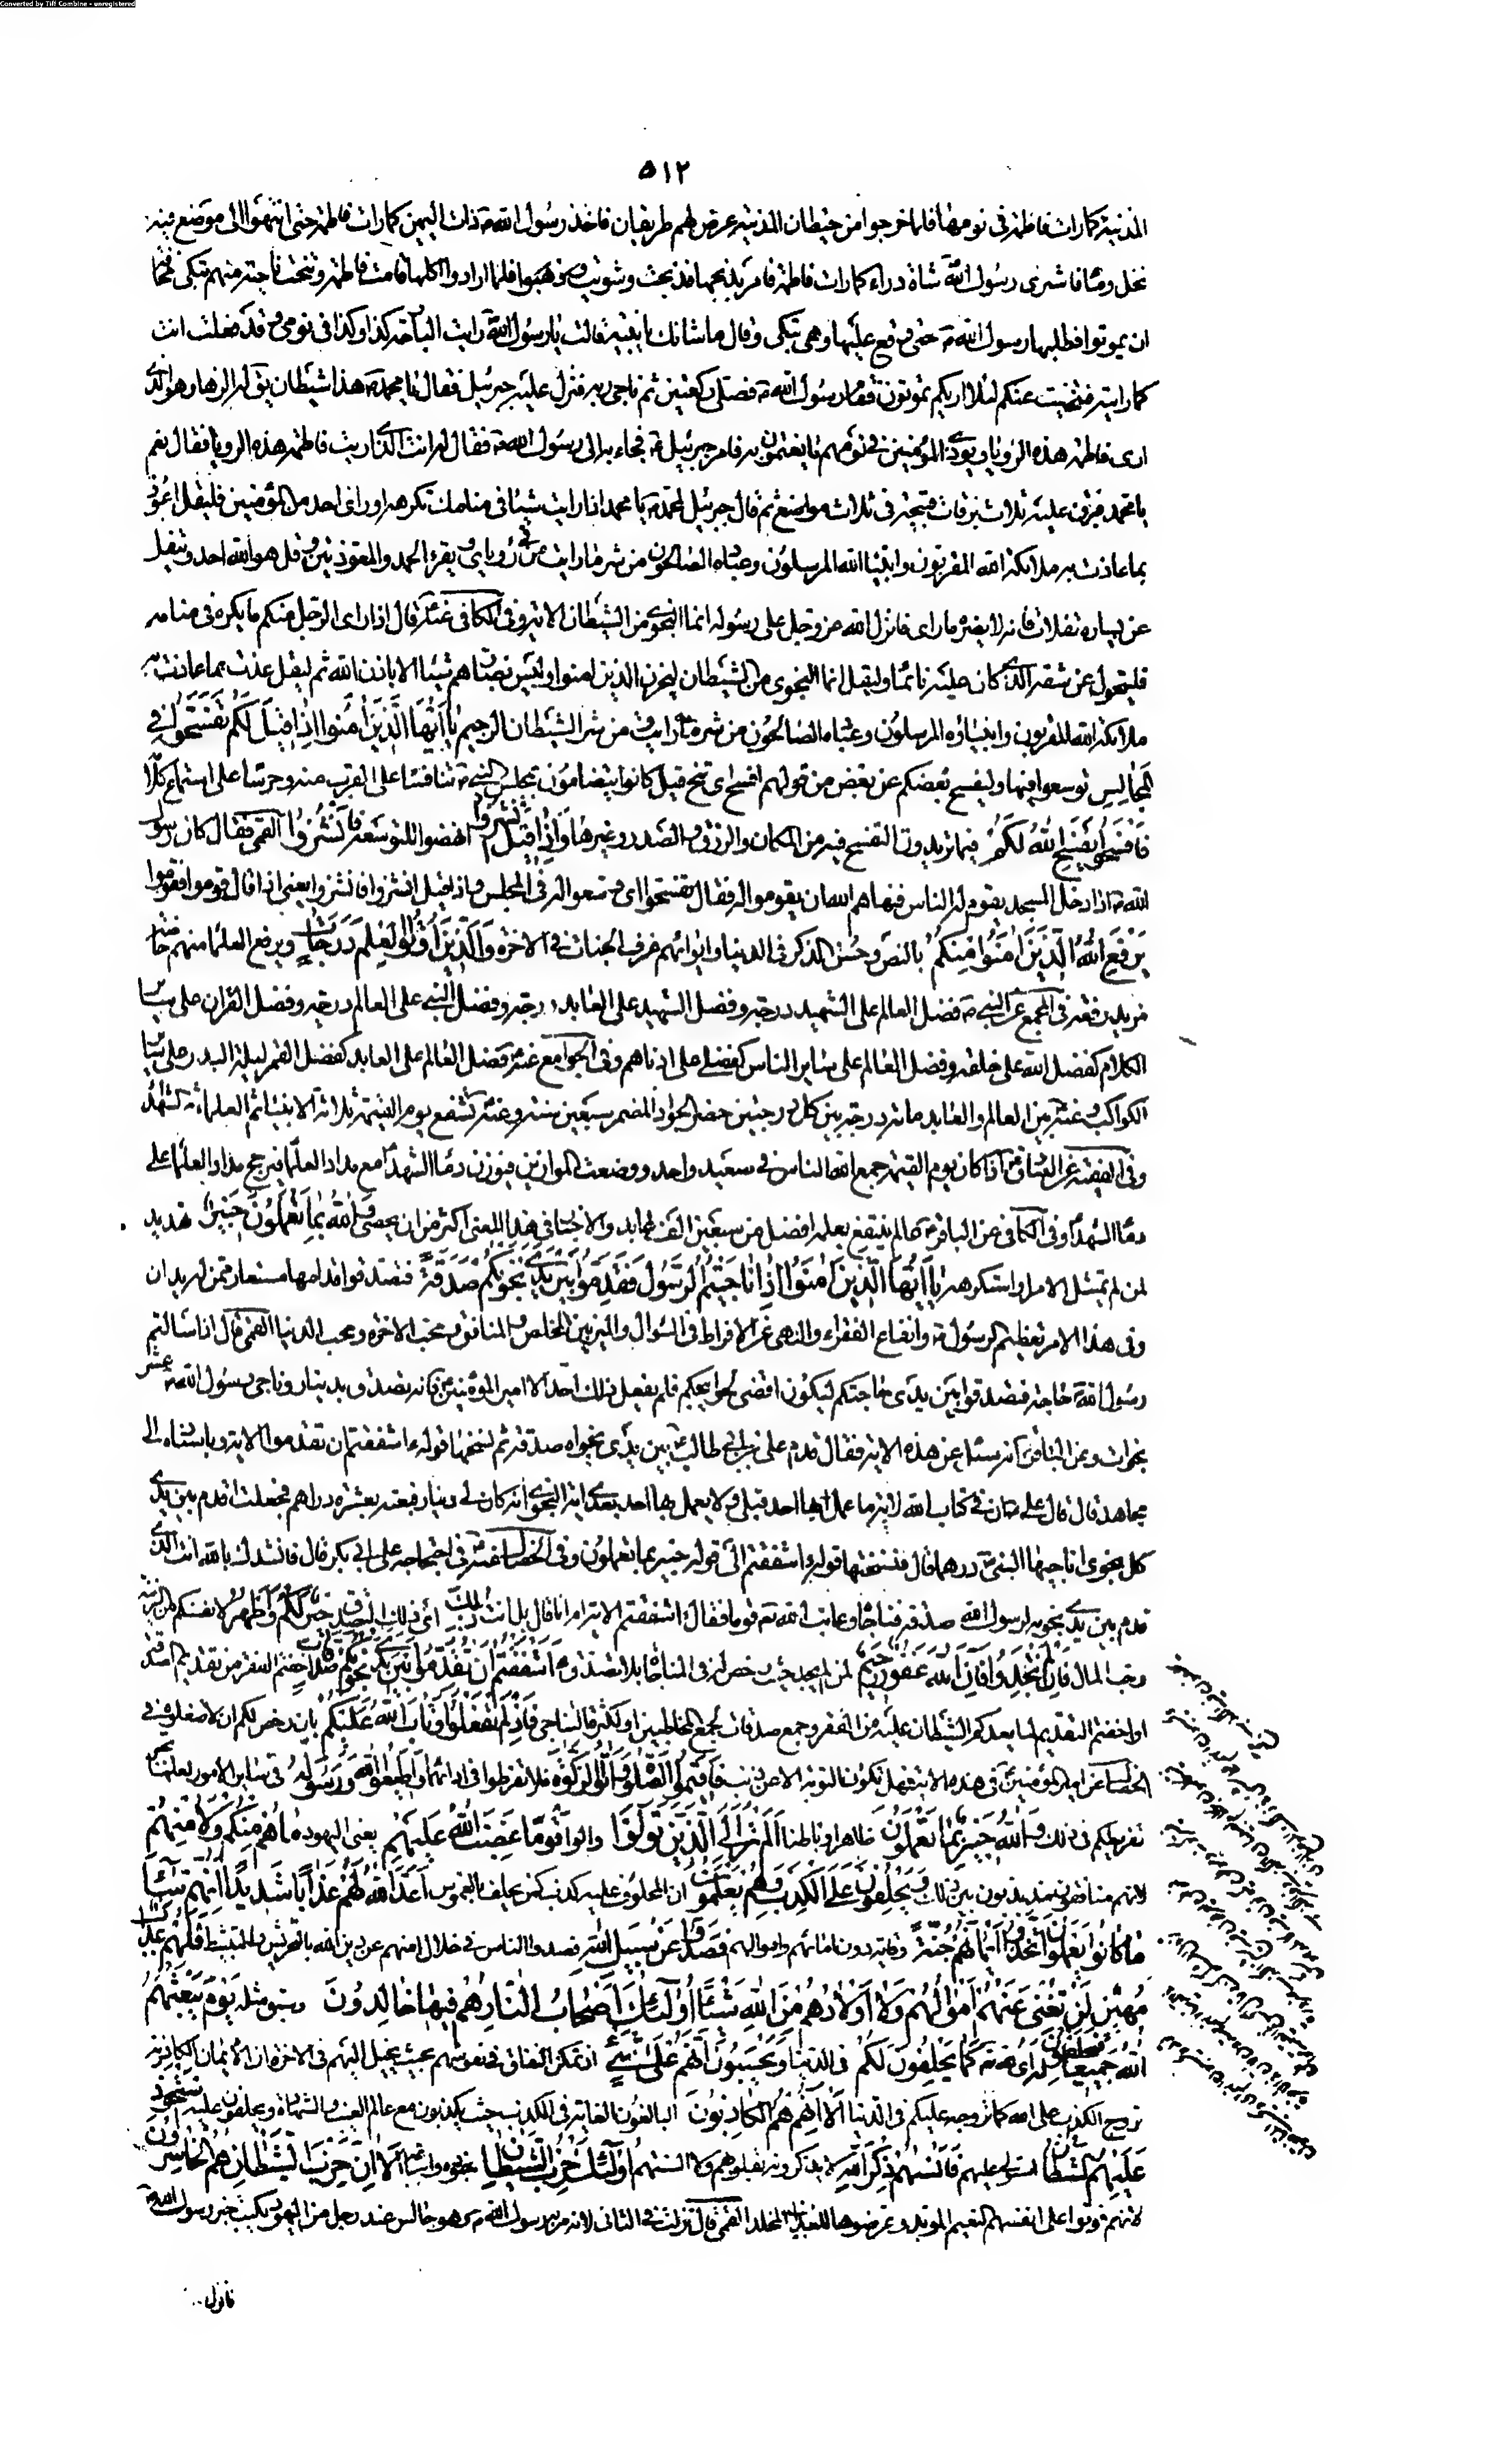 Converted by Tiff Combine - unregistered
٥١٢
المدينة كما رات فاطمة في نومها فلما خرجوا من حيطان المدينة عرض لهم طريقان فاخذ رسول الله ص ذات اليمين كما رات فاطمة حتى انتهوا الى موضع فيه
نخل وماء فاشترى رسول الله ص شاة ذراء كما رات فاطمة فامر بذبحها فذبحت وشويت فلما ارادوا اكلها قامت فاطمة وتنحت ناحية منهم تبكى مخافة
ان يموتوا فطلبها رسول الله ص حتى وقع عليها وهى تبكى وقال ما شانك يا بنية قالت يا رسول الله رايت البارحة كذا وكذا في نومى وقد فعلت انت
كما رايته فتنحيت عنكم لئلا اريكم تموتون فقام رسول الله ص فصلى ركعتين ثم ناجى ربه فنزل عليه جبرئيل فقال يا محمد هذا شيطان يقال له الزها وهو الذى
ارى فاطمة هذه الرؤيا ويوذى المؤمنين في نومهم ما يغتمون به فامر جبرئيل فجاء به الى رسول الله ص فقال له انت الذى اريت فاطمة هذه الرويا فقال نعم
يا محمد فبزق عليه ثلاث بزقات فشجه في ثلاث مواضع ثم قال جبرئيل لمحمد ص يا محمد اذا رايت شيئا في منامك تكرهه او راى احد من المؤمنين فليقل اعوذ
بما عاذت به ملائكة الله المقربون وانبياء الله المرسلون وعباده الصالحون من شر ما رايت من رؤياى ويقرء الحمد والمعوذتين وقل هو الله احد ويتفل
عن يساره تفلات فانه لا يضره ما راى فانزل الله عز وجل على رسوله انما النجوى من الشيطان الاية وفي الكافي عنه ع قال اذا راى الرجل منكم ما يكره في منامه
فليتحول عن شقه الذى كان عليه نائما وليقل انما النجوى من الشيطان ليحزن الذين امنوا وليس بضارهم شيئا الا باذن الله ثم ليقل عذت بما عاذت به
ملائكة الله المقربون وانبياؤه المرسلون وعباده الصالحون من شر ما رايت ومن شر الشيطان الرجيم يا ايها الذين امنوا اذا قيل لكم تفسحوا في
المجالس توسعوا فيها وليفسح بعضكم عن بعض من قولهم افسح اى تنح قيل كانوا يتضامون بمجلس النبي ص تنافسا على القرب منه وحرصا على استماع كلامه
فافسحوا يفسح الله لكم فيما تريدون التفسح فيه من المكان والرزق والصدر وغيرها واذا قيل انشزوا انهضوا للتوسعة فانشزوا القمى قال كان رسول
الله ص اذا دخل المسجد يقوم له الناس فنهاهم الله ان يقوموا له فقال تفسحوا اى وسعوا له في المجلس واذا قيل انشزوا فانشزوا يعنى اذا قال قوموا فقوموا
يرفع الله الذين امنوا منكم بالنصر وحسن الذكر في الدنيا وايوائهم غرف الجنات في الاخرة والذين اوتوا العلم درجات ويرفع العلماء منهم خاصة
مزيد رفعة في المجمع عن النبي ص فضل العالم على الشهيد درجة وفضل الشهيد على العابد درجة وفضل النبي على العالم درجة وفضل القران على سائر
الكلام كفضل الله على خلقه وفضل العالم على سائر الناس كفضلى على ادناهم وفي الجوامع عنه ص فضل العالم على العابد كفضل القمر ليلة البدر على سائر
الكواكب وعنه ص بين العالم والعابد مائة درجة بين كل درجتين حضر الجواد المضمر سبعين سنة وعنه ص تشفع يوم القيمة ثلاثة الانبياء ثم العلماء ثم الشهداء
وفي الفقيه عن الصادق ع اذا كان يوم القيمة جمع الله الناس في صعيد واحد ووضعت الموازين فيوزن دماء الشهداء مع مداد العلماء فيرجح مداد العلماء على
دماء الشهداء وفي الكافي عن الباقر ع عالم ينتفع بعلمه افضل من سبعين الف عابد والاخبار في هذا المعنى اكثر من ان يحصى والله بما تعملون خبير تهديد
لمن لم يتمثل الامر او استكرهه يا ايها الذين امنوا اذا ناجيتم الرسول فقدموا بين يدى نجويكم صدقة فتصدقوا قدامها مستعار ممن له يدان
وفي هذا الامر تعظيم الرسول ص وانفاع الفقراء والنهى عن الافراط في السؤال والميز بين المخلص والمنافق ومحب الاخرة ومحب الدنيا القمى قال اذا سالتم
رسول الله ص حاجة فتصدقوا بين يدى حاجتكم ليكون اقضى لحوائجكم فلم يفعل ذلك احد الا امير المؤمنين ع فانه تصدق بدينار وناجى رسول الله ص عشر
نجوات وعن الباقر ع انه سئل عن هذه الاية فقال قدم على بن ابى طالب ع بين يدى نجواه صدقة ثم نسخها قوله ءاشفقتم ان تقدموا الاية وباسناده الى
مجاهد قال قال على ع ان في كتاب الله لاية ما عمل بها احد قبلى ولا يعمل بها احد بعدى اية النجوى انه كان لى دينار فبعته بعشرة دراهم فجعلت اقدم بين يدى
كل نجوى اناجيها النبي ص درهما قال فنسختها قوله ءاشفقتم الى قوله خبير بما تعملون وفي الخصال عنه ع في احتجاجه على ابى بكر قال فانشدك بالله انت الذى
قدم بين يدى نجويه لرسول الله صدقة فناجاه وعاتب الله تعالى قوما فقال ءاشفقتم الاية ام انا قال بل انت ذلك اى ذلك التصدق خير لكم واطهر لانفسكم من الريبة
وحب المال فان لم تجدوا فان الله غفور رحيم لمن لم يجد حيث رخص له في المناجاة بلا تصدق ءاشفقتم ان تقدموا بين يدى نجويكم صدقات اخفتم الفقر من تقديم الصدقة
او اخفتم التقديم لما يعدكم الشيطان عليه من الفقر وجمع صدقات لجمع المخاطبين او لكثرة التناجى فاذ لم تفعلوا وتاب الله عليكم بان رخص لكم ان لا تفعلوه في
الخصال عن امير المؤمنين ع في هذه الاية فهل تكون التوبة الا عن ذنب فاقيموا الصلوة واتوا الزكوة فلا تفرطوا في ادائهما واطيعوا الله ورسوله في سائر الامور لعلها تجبر
تفريطكم في ذلك والله خبير بما تعملون ظاهرا وباطنا الم تر الى الذين تولوا والوا قوما غضب الله عليهم يعنى اليهود ما هم منكم ولا منهم
لانهم منافقون مذبذبون بين ذلك ويحلفون على الكذب وهم يعلمون ان المحلوف عليه كذب كمن يحلف بالغموس اعد الله لهم عذابا شديدا انهم ساء
ما كانوا يعملون اتخذوا ايمانهم جنة وقاية دون دمائهم واموالهم فصدوا عن سبيل الله فصدوا الناس في خلال امنهم عن دين الله بالتحريش والتثبيط فلهم عذاب
مهين لن تغنى عنهم اموالهم ولا اولادهم من الله شيئا اولئك اصحاب النار هم فيها خالدون وسبق مثله يوم يبعثهم
الله جميعا فيحلفون له اى لله تعالى كما يحلفون لكم في الدنيا ويحسبون انهم على شىء اذ تمكن النفاق في نفوسهم بحيث يخيل اليهم في الاخرة ان الايمان الكاذبة
تروج الكذب على الله كما تروجه عليكم في الدنيا الا انهم هم الكاذبون البالغون الغاية في الكذب حيث يكذبون مع عالم الغيب والشهادة ويحلفون عليه استحوذ
عليهم الشيطان استولى عليهم فانسيهم ذكر الله لا يذكرونه بقلوبهم ولا بالسنتهم اولئك حزب الشيطان جنوده واتباعه الا ان حزب الشيطان هم الخاسرون
لانهم فوتوا على انفسهم النعيم المؤبد وعرضوها للعذاب المخلد القمى قال نزلت في الثانى لانه مر به رسول الله ص وهو جالس عند رجل من اليهود يكتب خبر رسول الله ص
فانزل